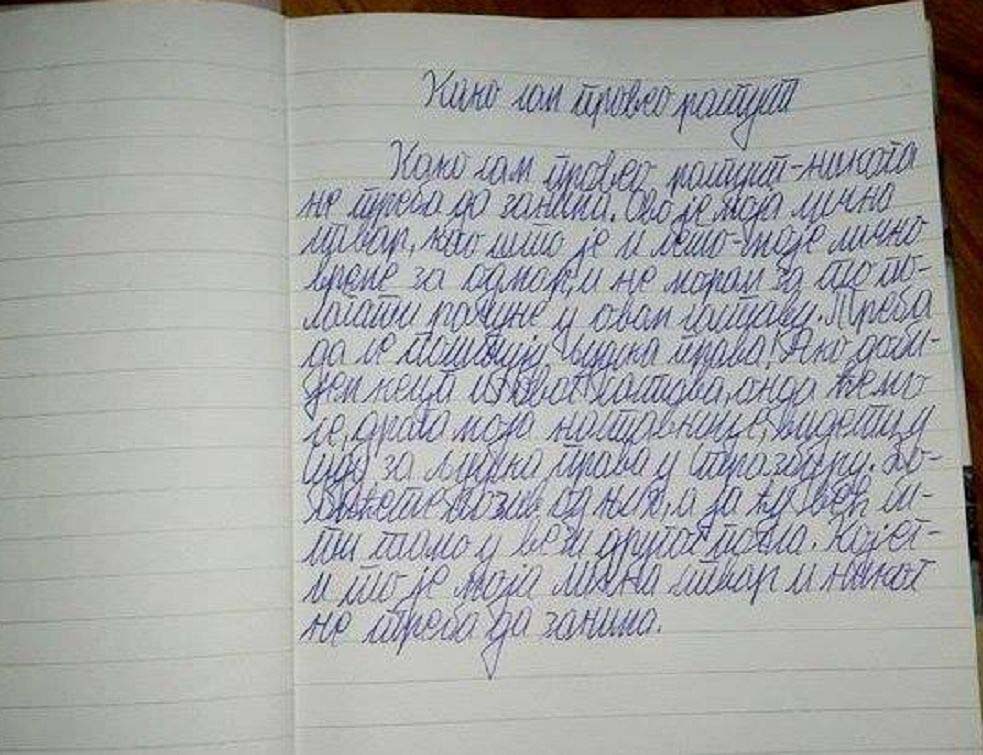 Како сам провео распуст
Како сам провео распуст-никога
не треба да занима. Ово је моја лична
ствар, као што је и лето-моје лично
време за одмор, и не морам за то по-
лагати рачуне у овом саставу. Треба
да се поштују људска права! Ако доби-
јем кеца из овог састава, онда ћемо
се, драга моја наставнице, видети у
Суду за људска права у Стразбуру. До-
бићете позив од њих, а ја ћу већ би-
ти тамо у вези другог посла. Којег-
и то је моја лична ствар и никог
не треба да занима.